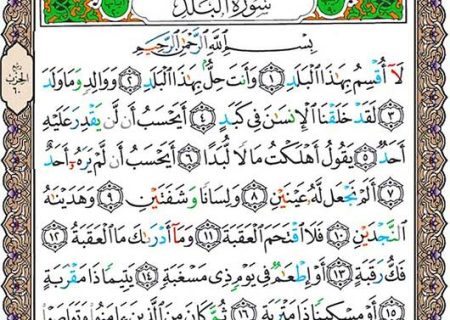 سُورَةُ الْبَلَدِ
ربع
الحزب
٦٠
بِسْمِ اللَّهِ الرَّحْمَٰنِ الرَّحِيمِ
لَا أُقْسِمُ بِهَٰذَا الْبَلَدِ ١ وَأَنتَ حِلٌّ بِهَٰذَا الْبَلَدِ ٢ وَوَالِدٍ وَمَا وَلَدَ
٣ لَقَدْ خَلَقْنَا الْإِنسَانَ فِي كَبَدٍ ٤ أَيَحْسَبُ أَن لَّن يَقْدِرَ عَلَيْهِ
أَحَدٌ ٥ يَقُولُ أَهْلَكْتُ مَالًا لُّبَدًا ٦ أَيَحْسَبُ أَن لَّمْ يَرَهُ أَحَدٌ
٧ أَلَمْ نَجْعَل لَّهُ عَيْنَيْنِ ٨ وَلِسَانًا وَشَفَتَيْنِ ٩ وَهَدَيْنَاهُ
النَّجْدَيْنِ ١٠ فَلَا اقْتَحَمَ الْعَقَبَةَ ١١ وَمَا أَدْرَاكَ مَا الْعَقَبَةُ ١٢
فَكُّ رَقَبَةٍ ١٣ أَوْ إِطْعَامٌ فِي يَوْمٍ ذِي مَسْغَبَةٍ ١٤ يَتِيمًا ذَا مَقْرَبَةٍ
١٥ أَوْ مِسْكِينًا ذَا مَتْرَبَةٍ ١٦ ثُمَّ كَانَ مِنَ الَّذِينَ آمَنُوا وَتَوَاصَوْا